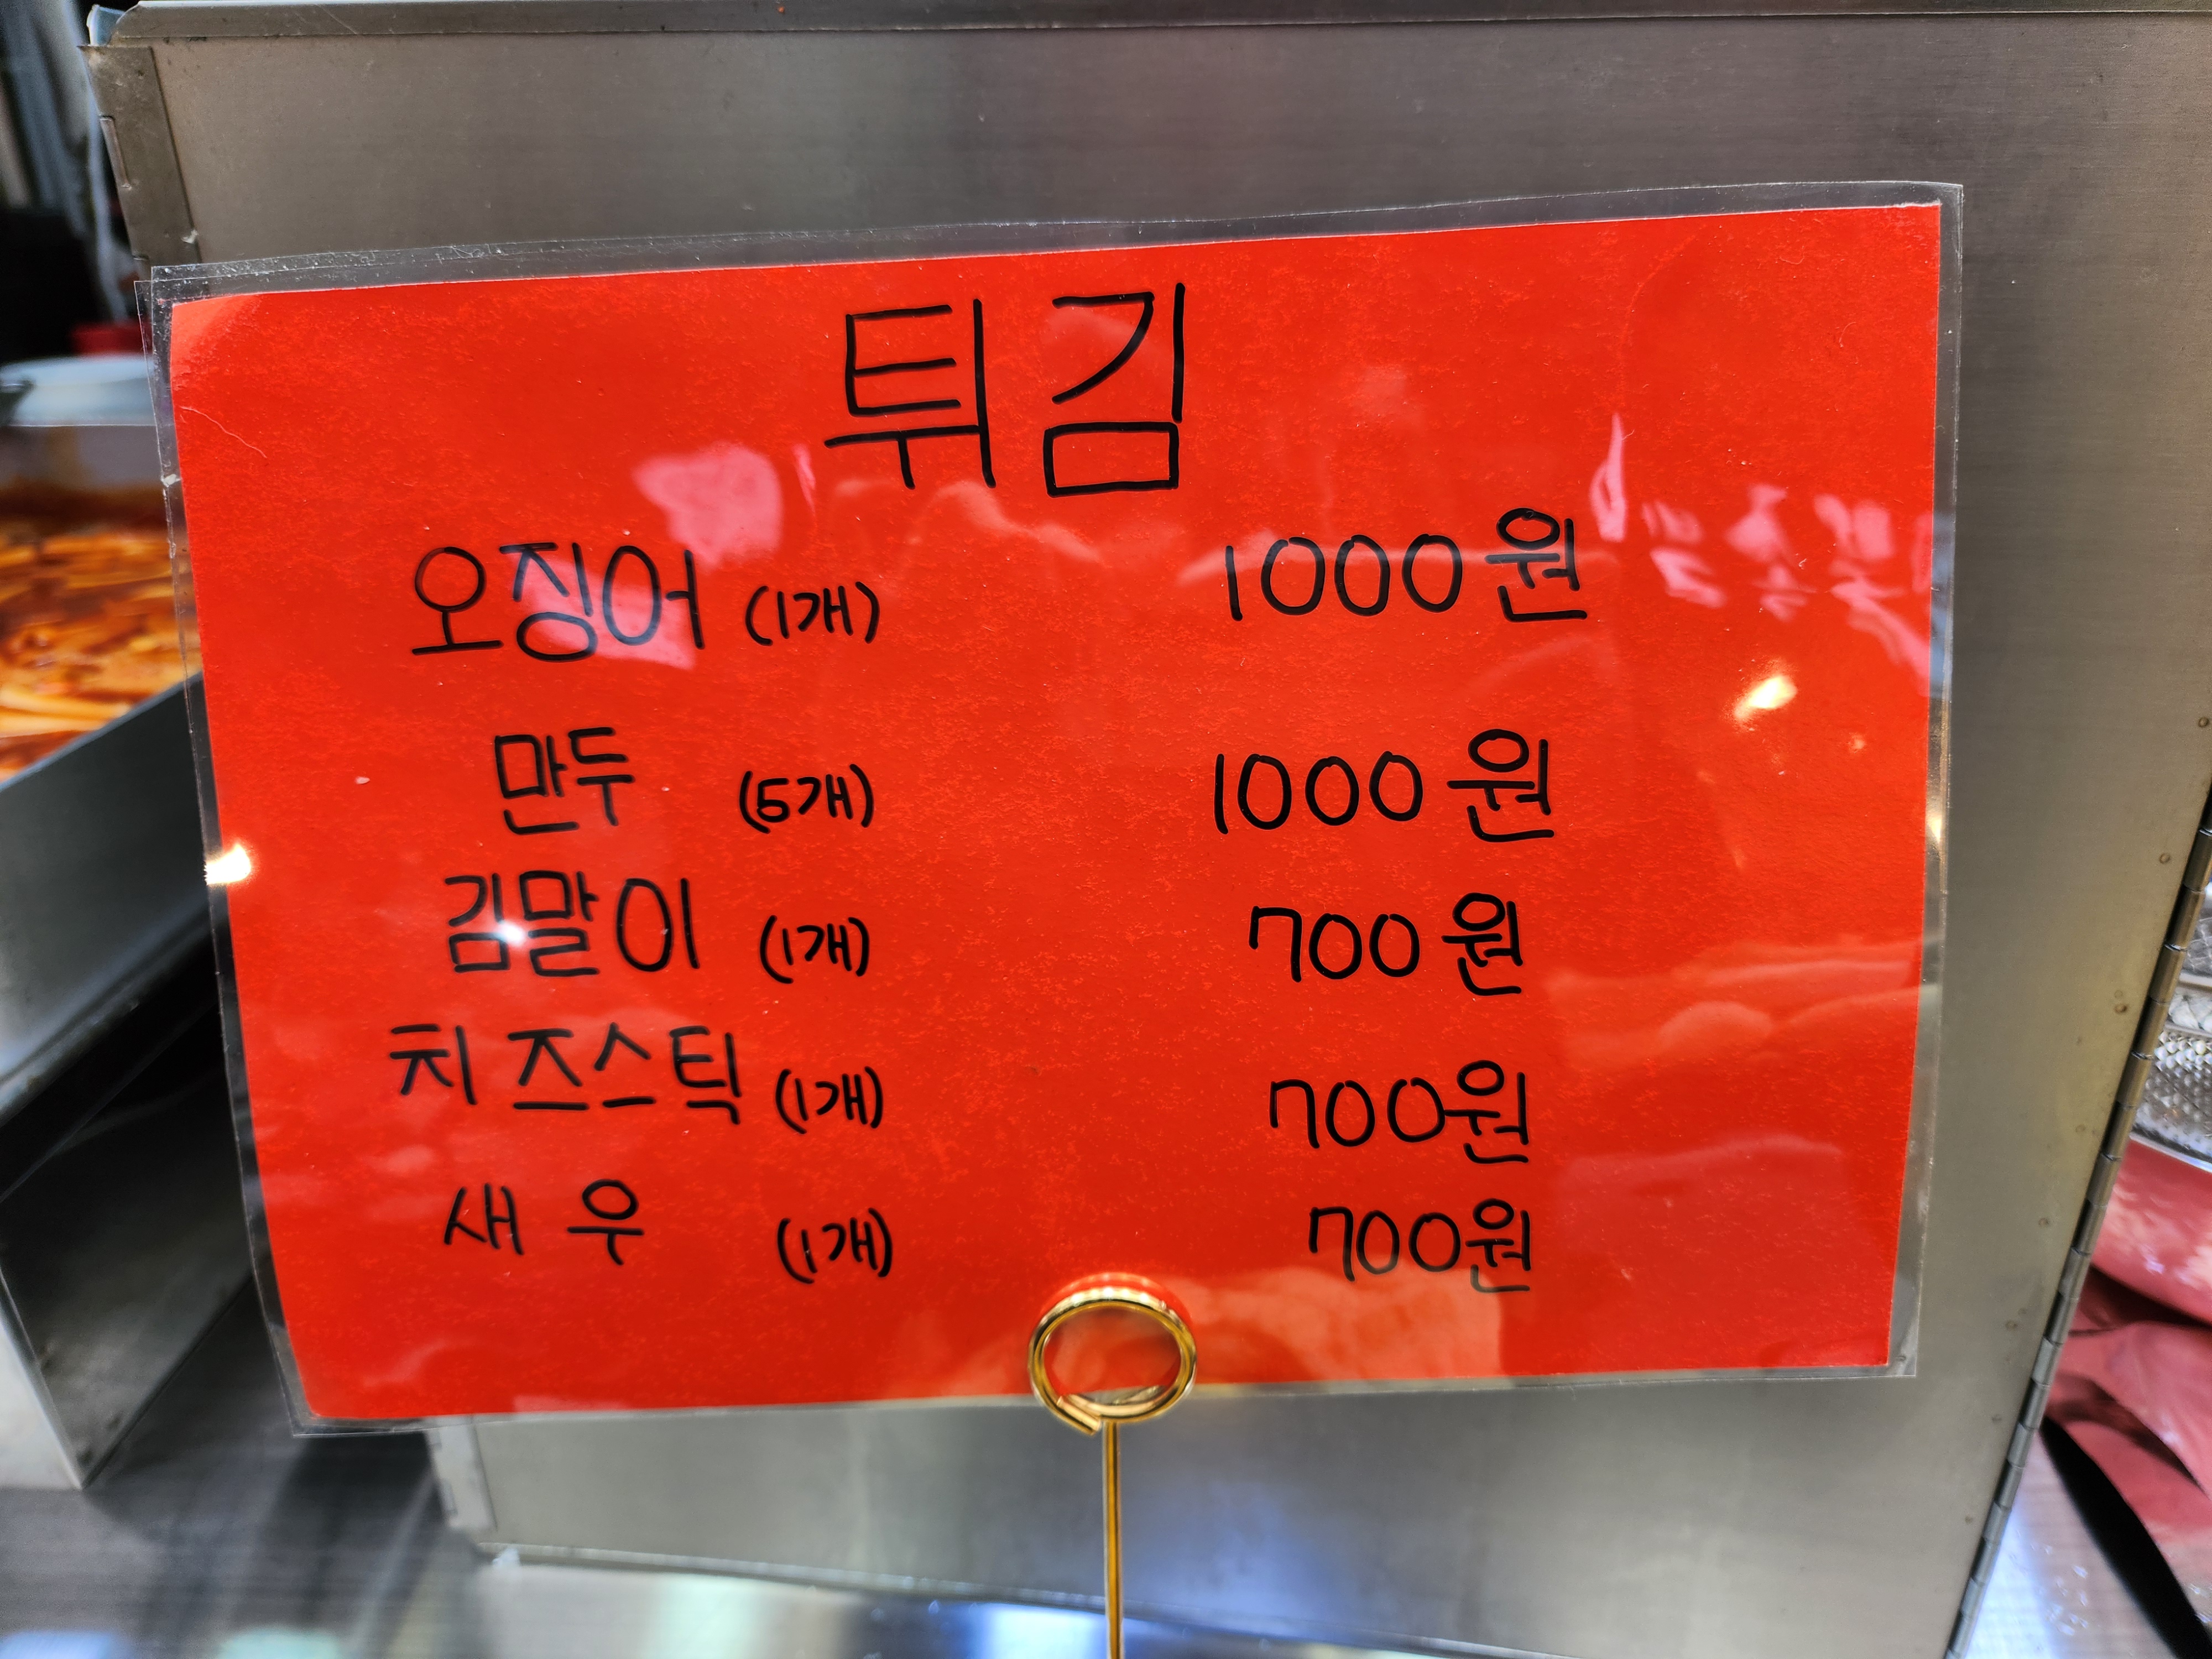 튀김
오징어 (1개) 1000원
만두 (5개) 1000원
김말이 (1개) 700원
치즈스틱 (1개) 700원
새우 (1개) 700원